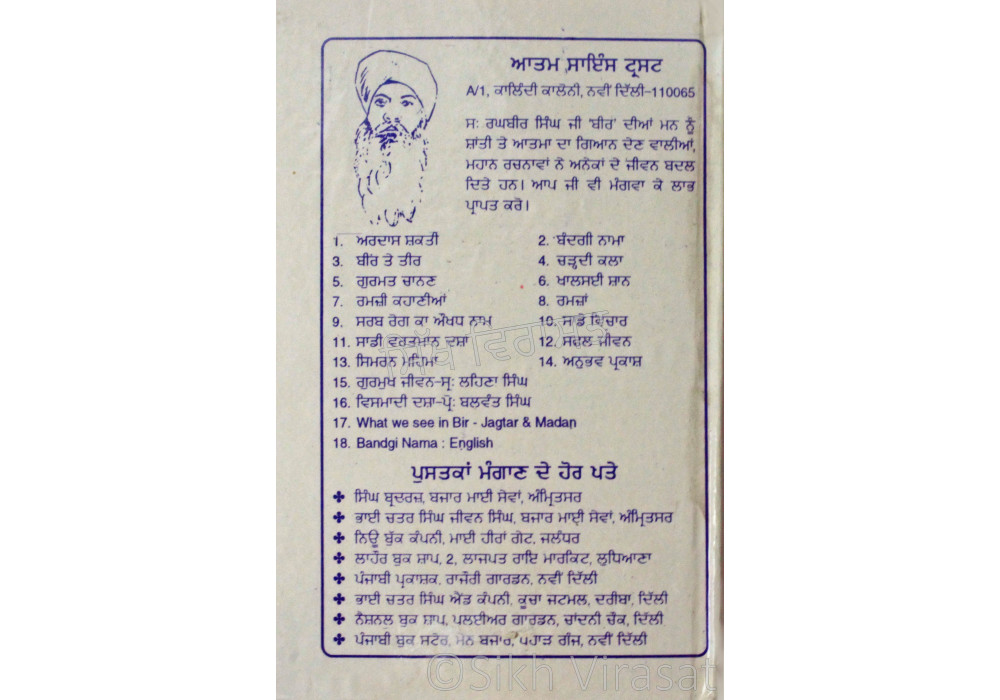 ਆਤਮ ਸਾਇੰਸ ਟ੍ਰਸਟ
A/1, ਕਾਲਿੰਦੀ ਕਾਲੋਨੀ, ਨਵੀਂ ਦਿੱਲੀ-110065
ਸ: ਰਘਬੀਰ ਸਿੰਘ ਜੀ 'ਬੀਰ' ਦੀਆਂ ਮਨ ਨੂੰ
ਸ਼ਾਂਤੀ ਤੇ ਆਤਮਾ ਦਾ ਗਿਆਨ ਦੇਣ ਵਾਲੀਆਂ,
ਮਹਾਨ ਰਚਨਾਵਾਂ ਨੇ ਅਨੇਕਾਂ ਦੇ ਜੀਵਨ ਬਦਲ
ਦਿਤੇ ਹਨ। ਆਪ ਜੀ ਵੀ ਮੰਗਵਾ ਕੇ ਲਾਭ
ਪ੍ਰਾਪਤ ਕਰੋ।
1. ਅਰਦਾਸ ਸ਼ਕਤੀ 2. ਬੰਦਗੀ ਨਾਮਾ
3. ਬੀਰ ਤੇ ਤੀਰ 4. ਚੜ੍ਹਦੀ ਕਲਾ
5. ਗੁਰਮਤ ਚਾਨਣ 6. ਖਾਲਸਈ ਸ਼ਾਨ
7. ਰਮਜ਼ੀ ਕਹਾਣੀਆਂ 8. ਰਮਜ਼ਾਂ
9. ਸਰਬ ਰੋਗ ਕਾ ਔਖਧ ਨਾਮ 10. ਸਾਡੇ ਵਿਚਾਰ
11. ਸਾਡੀ ਵਰਤਮਾਨ ਦਸ਼ਾ 12. ਸਫਲ ਜੀਵਨ
13. ਸਿਮਰਨ ਮਹਿਮਾ 14. ਅਨੁਭਵ ਪ੍ਰਕਾਸ਼
15. ਗੁਰਮੁਖ ਜੀਵਨ-ਸ੍ਰ: ਲਹਿਣਾ ਸਿੰਘ
16. ਵਿਸਮਾਦੀ ਦਸ਼ਾ-ਪ੍ਰੋ: ਬਲਵੰਤ ਸਿੰਘ
17. What we see in Bir - Jagtar & Madan
18. Bandgi Nama : English
ਪੁਸਤਕਾਂ ਮੰਗਾਣ ਦੇ ਹੋਰ ਪਤੇ
✤ ਸਿੰਘ ਬ੍ਰਦਰਜ਼, ਬਜਾਰ ਮਾਈ ਸੇਵਾਂ, ਅੰਮ੍ਰਿਤਸਰ
✤ ਭਾਈ ਚਤਰ ਸਿੰਘ ਜੀਵਨ ਸਿੰਘ, ਬਜਾਰ ਮਾਈ ਸੇਵਾਂ, ਅੰਮ੍ਰਿਤਸਰ
✤ ਨਿਊ ਬੁੱਕ ਕੰਪਨੀ, ਮਾਈ ਹੀਰਾਂ ਗੇਟ, ਜਲੰਧਰ
✤ ਲਾਹੌਰ ਬੁਕ ਸ਼ਾਪ, 2, ਲਾਜਪਤ ਰਾਇ ਮਾਰਕਿਟ, ਲੁਧਿਆਣਾ
✤ ਪੰਜਾਬੀ ਪ੍ਰਕਾਸ਼ਕ, ਰਾਜੌਰੀ ਗਾਰਡਨ, ਨਵੀਂ ਦਿੱਲੀ
✤ ਭਾਈ ਚਤਰ ਸਿੰਘ ਐਂਡ ਕੰਪਨੀ, ਕੂਚਾ ਜਟਮਲ, ਦਰੀਬਾ, ਦਿੱਲੀ
✤ ਨੈਸ਼ਨਲ ਬੁਕ ਸ਼ਾਪ, ਪਲਈਅਰ ਗਾਰਡਨ, ਚਾਂਦਨੀ ਚੌਕ, ਦਿੱਲੀ
✤ ਪੰਜਾਬੀ ਬੁਕ ਸਟੋਰ, ਮੇਨ ਬਜਾਰ, ਪਹਾੜ ਗੰਜ, ਨਵੀਂ ਦਿੱਲੀ
©Sikh Virasat